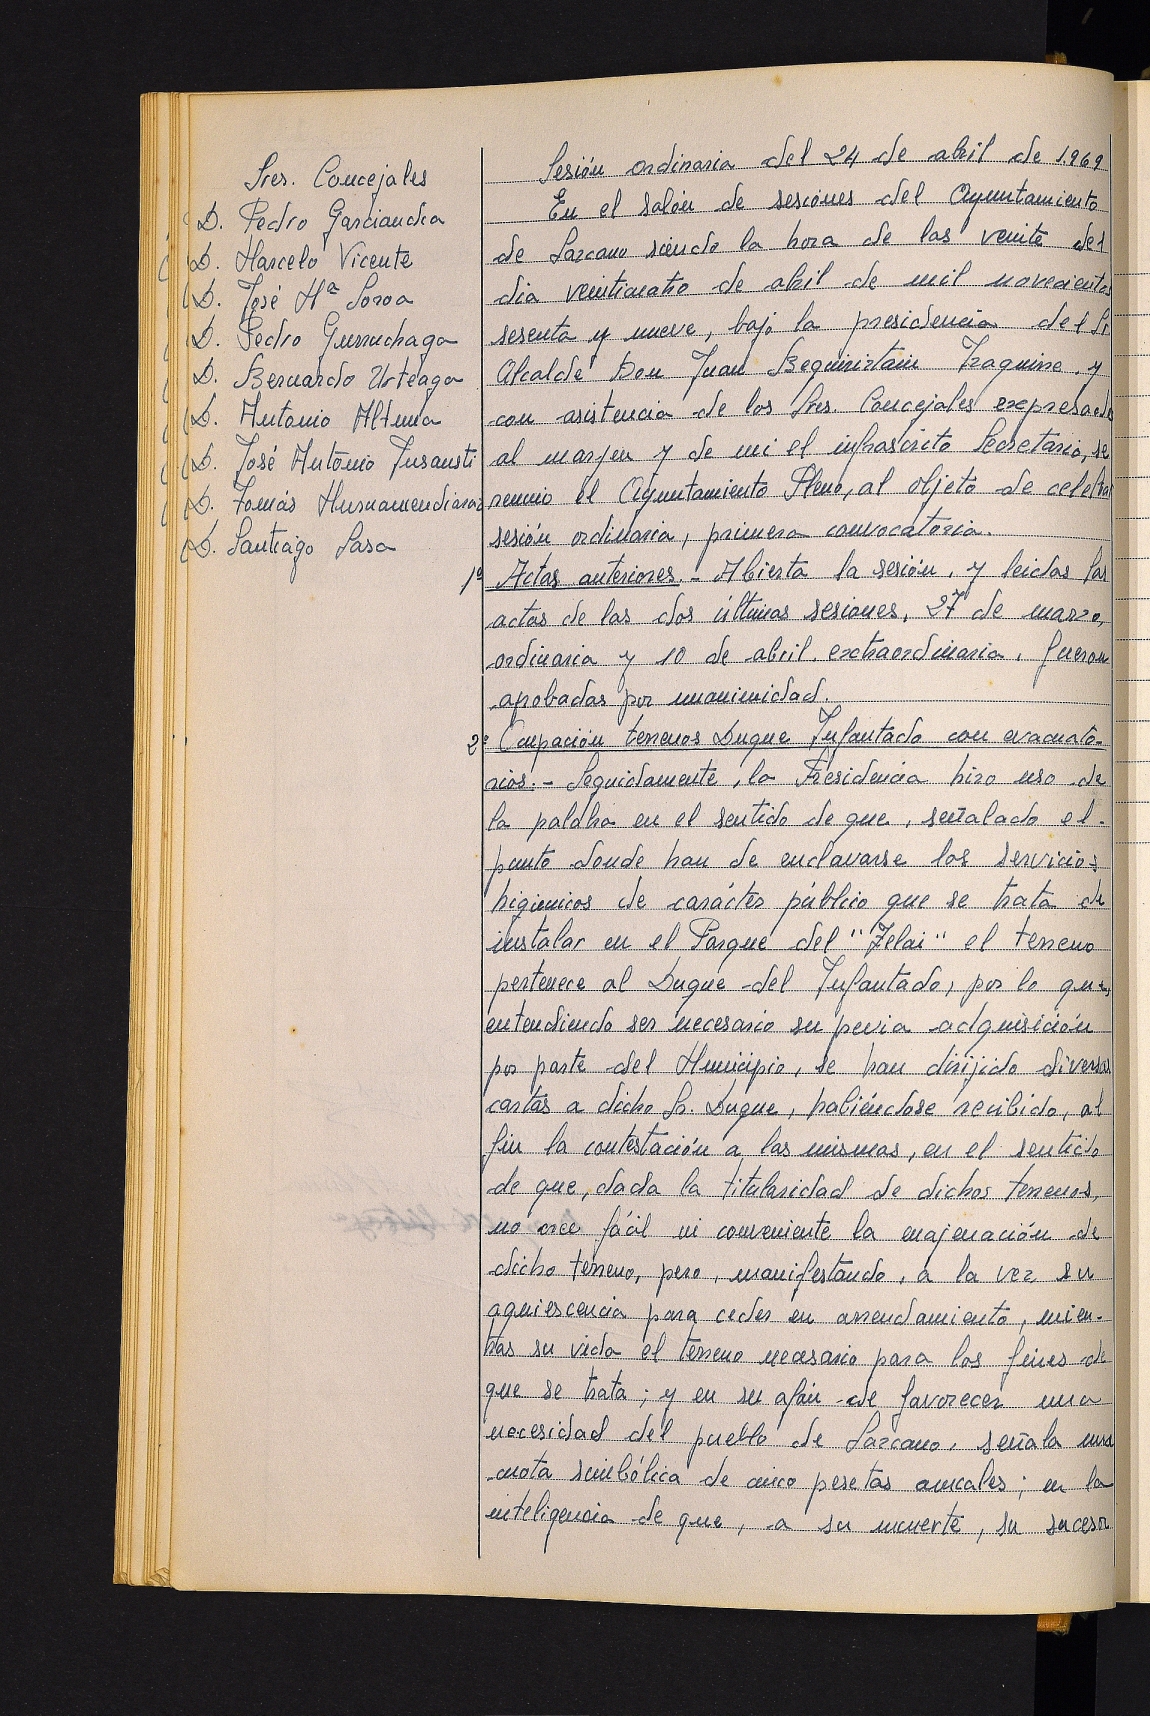 Sres. Concejales
D. Pedro Garciandia
D. Marcelo Vicente
D. José Mª Soroa
D. Pedro Gurruchaga
D. Bernardo Urteaga
D. Antonio Altuna
D. José Antonio Insausti
D. Tomás
D. Santiago Sasa
Sesión ordinaria del 24 de abril de 1.969
En el salón de sesiones del Ayuntamiento
de Lazcano siendo la hora de las veinte del
dia veinticuatro de abril de mil novecientos
sesenta y nueve, bajo la presidencia del Sr.
Alcalde Don Juan Beguiristain , y
con asistencia de los Sres. Concejales expresados
al margen y de mi el infrascrito Secretario, se
reunio el Ayuntamiento Pleno, al objeto de celebrar
sesión ordinaria, primera convocatoria.
1º Actas anteriores.- Abierta la sesión, y leidas las
actas de las dos últimas sesiones, 27 de marzo,
ordinaria y 10 de abril, extraordinaria, fueron
aprobadas por unanimidad.
2º Ocupación terrenos Duque Infantado con evacuato-
rios.- Seguidamente, la Presidencia hizo uso de
la palabra en el sentido de que, señalado el
punto donde han de enclavarse los servicios
higienicos de carácter público que se trata de
instalar en el Parque del "Zelai" el terreno
pertenece al Duque del Infantado, por lo que,
entendiendo ser necesario su previa adquisición
por parte del Municipio, se han dirijido diversas
cartas a dicho Sr. Duque, habiéndose recibido, al
fin la contestación a las mismas, en el sentido
de que, dada la titularidad de dichos terrenos,
no cree fácil ni conveniente la enajenación de
dicho terreno, pero, manifestando, a la vez su
aquiescencia para ceder en arrendamiento, mien-
tras su vida el terreno necesario para los fines de
que se trata; y en su afán de favorecer una
necesidad del pueblo de Lazcano, señala una
cuota simbólica de cinco pesetas anuales; en la
inteligencia de que, a su muerte, su sucesor